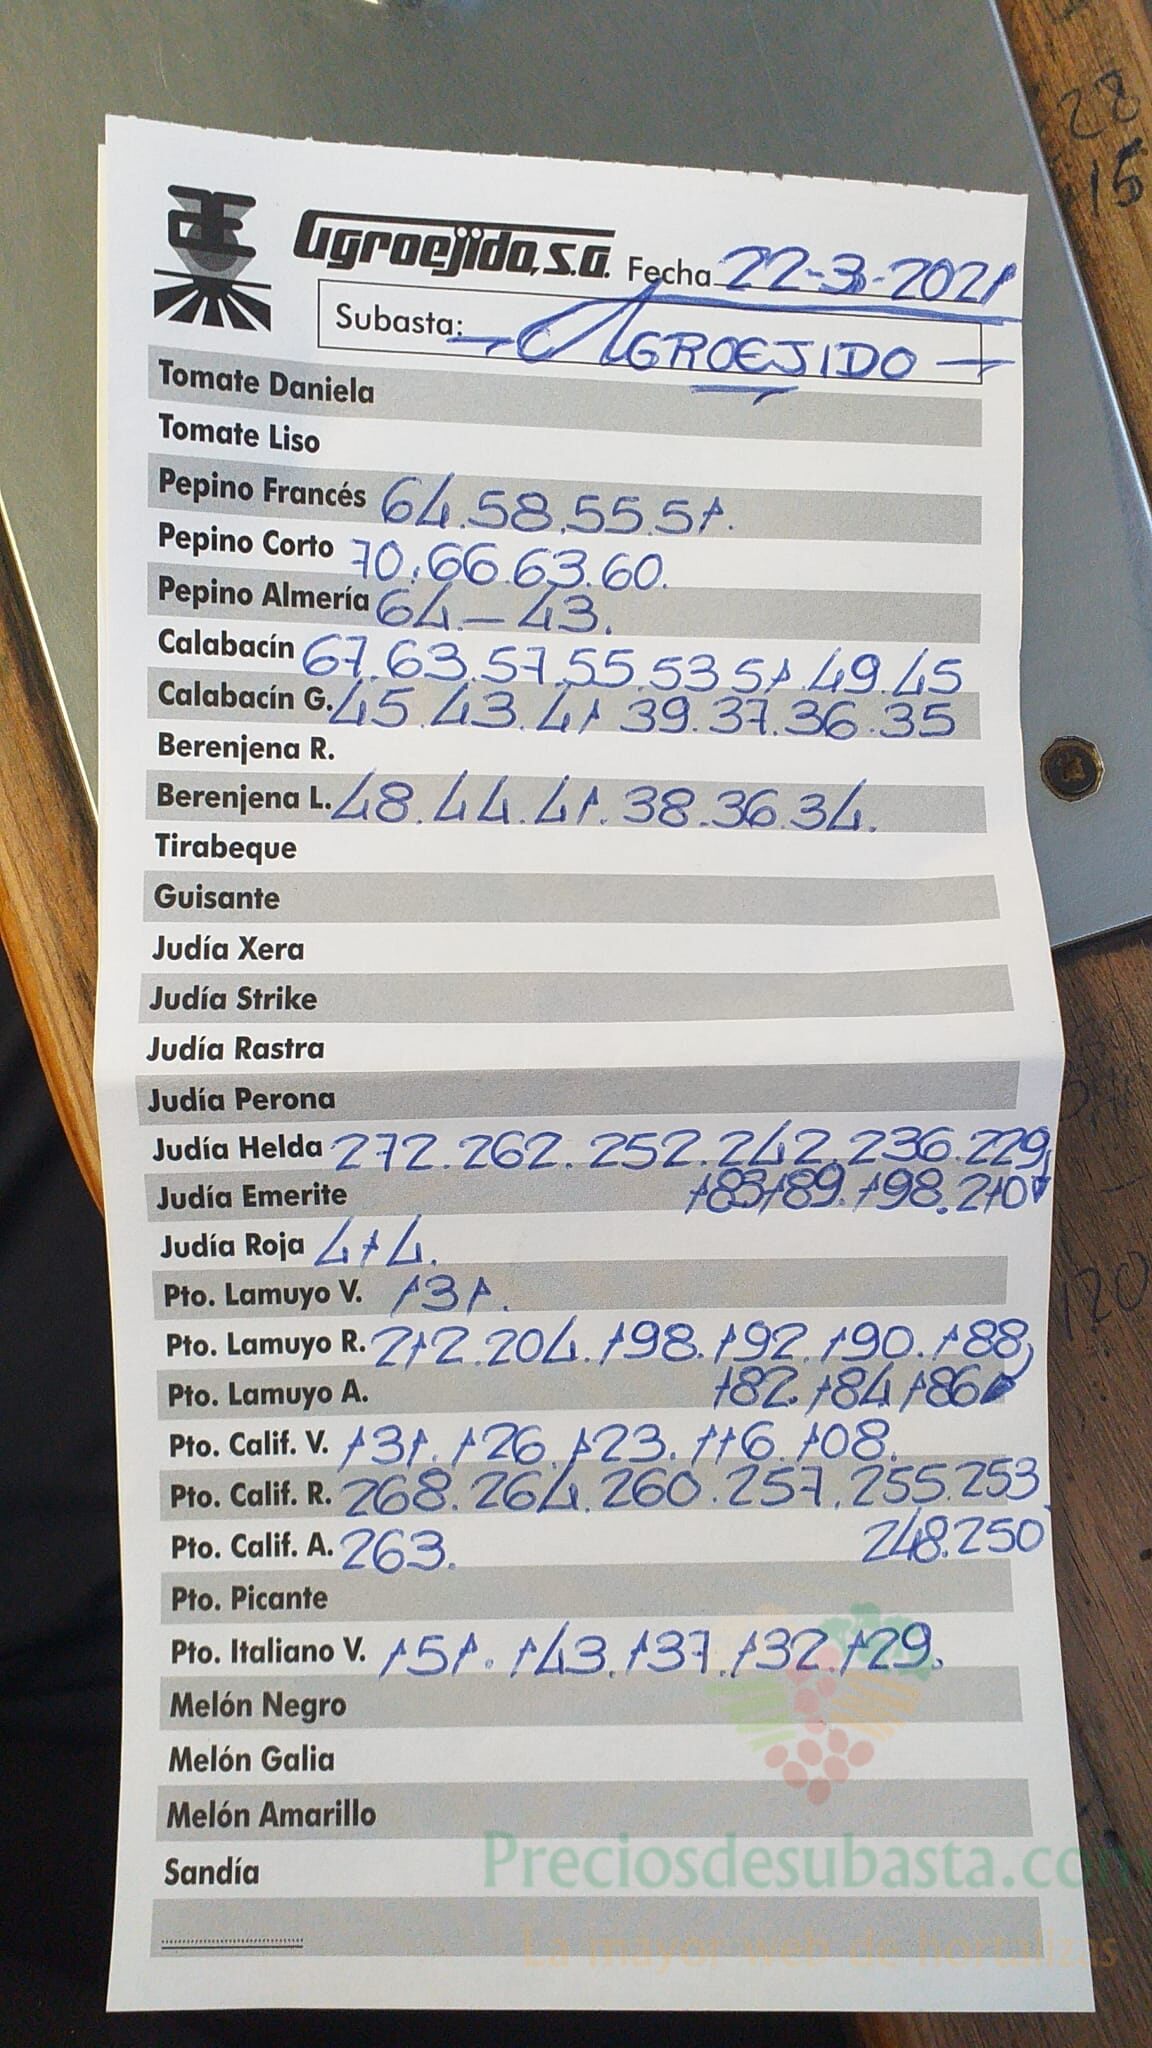 28
15
Agroejido, S.A. Fecha 22-3-2021
Subasta: - AGROEJIDO -
Tomate Daniela
Tomate Liso
Pepino Francés 64.58.55.51.
Pepino Corto 70.66.63.60.
Pepino Almería 64.-43.
Calabacín 67.63.57.55.53 51.49.45
Calabacín G. 45.43.41 39.37.36.35
Berenjena R.
Berenjena L. 48.44.41.38.36.34.
Tirabeque
Guisante
Judía Xera
Judía Strike
Judía Rastra
Judía Perona
Judía Helda 272.262.252.242.236.229,
Judía Emerite 183 189.198.210
Judía Roja 414.
Pto. Lamuyo V. 131.
Pto. Lamuyo R. 212.204.198.192.190.188,
Pto. Lamuyo A. 182.184 186
Pto. Calif. V. 131.126.123.116.108.
Pto. Calif. R. 268.264.260.257.255.253
Pto. Calif. A. 263. 248.250
120
Pto. Picante
Pto. Italiano V. 151.143.137.132.129.
Melón Negro
Melón Galia
Melón Amarillo
Sandía
Preciosdesubasta.com
La mayor web de hortalizas